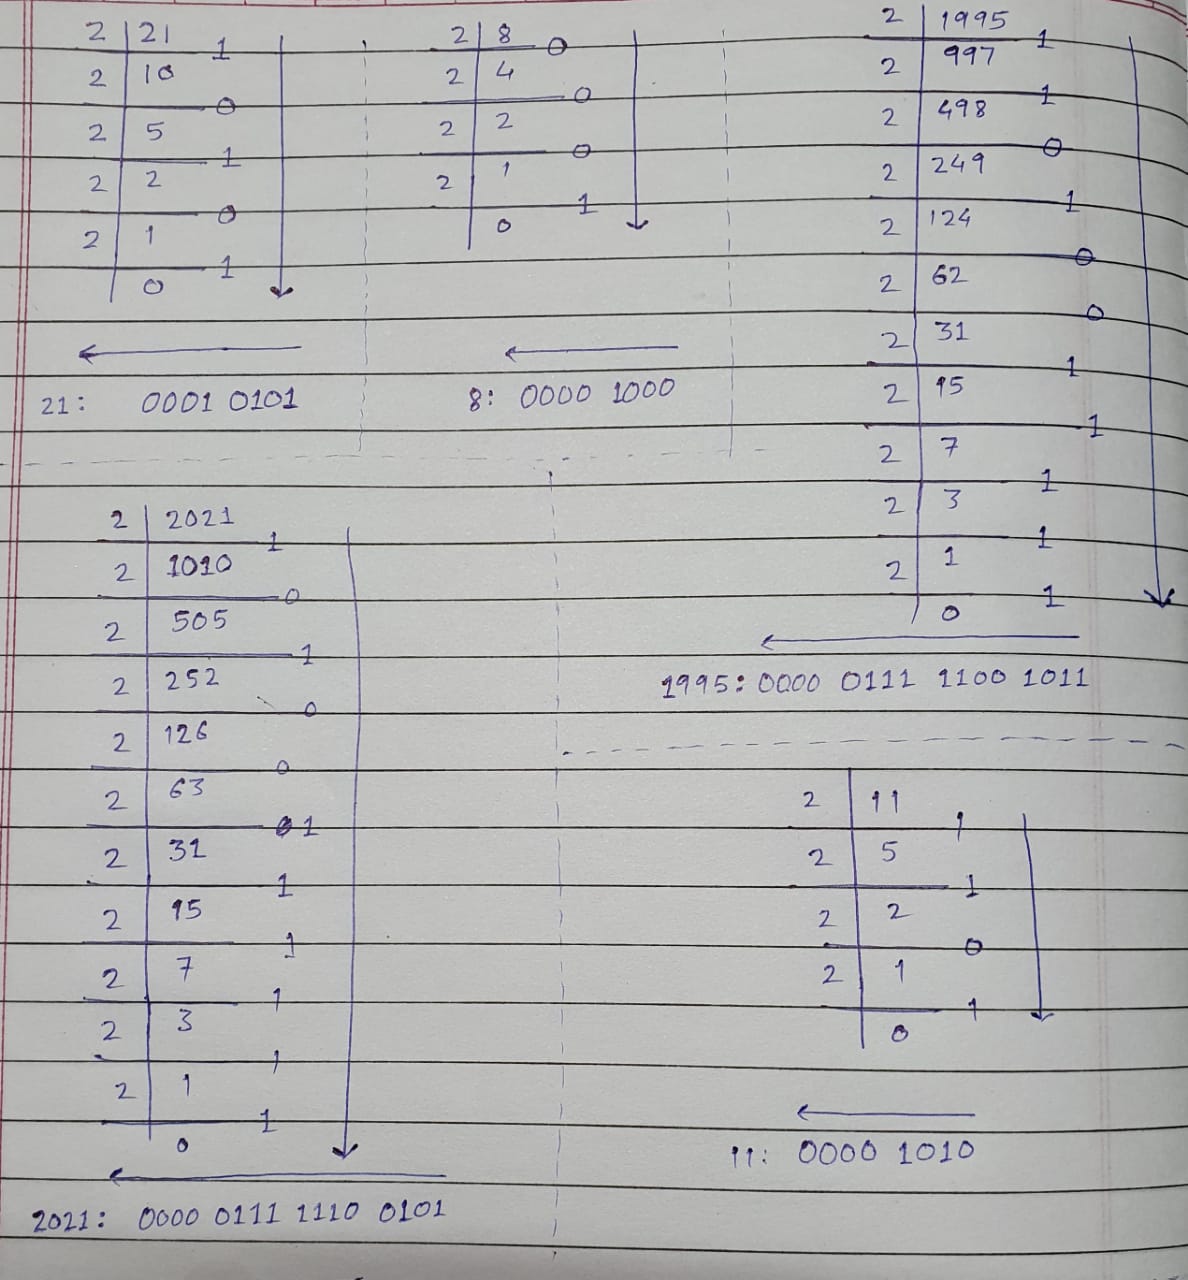 2 21 1
2 10 0
2 5 1
2 2 0
2 1 1
0
21: 0001 0101
2 8 0
2 4 0
2 2 0
2 1 1
0
8: 0000 1000
2 1995 1
2 997 1
2 498 0
2 249 1
2 124 0
2 62 0
2 31 1
2 15 1
2 7 1
2 3 1
2 1 1
0
1995: 0000 0111 1100 1011
2 2021 1
2 1010 0
2 505 1
2 252 0
2 126 0
2 63 1
2 31 1
2 15 1
2 7 1
2 3 1
2 1 1
0
2021: 0000 0111 1110 0101
2 11 1
2 5 1
2 2 0
2 1 1
0
11: 0000 1010